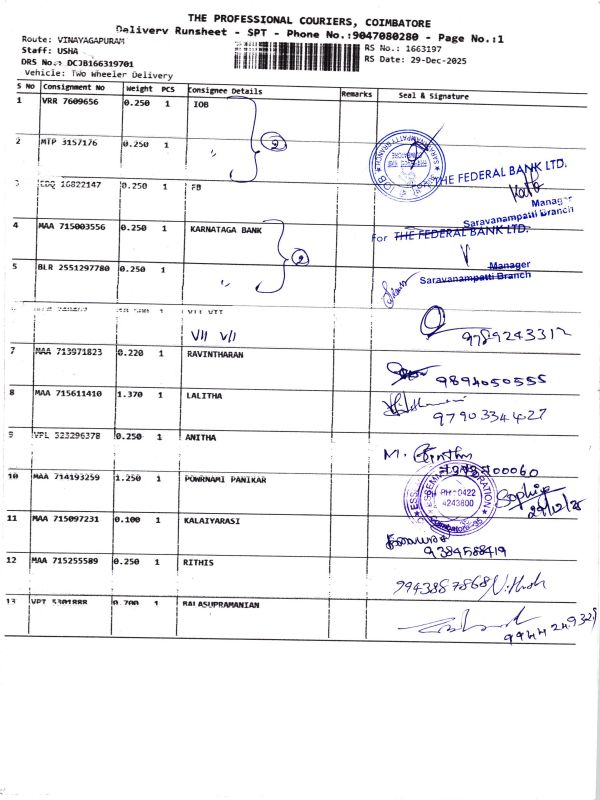 THE PROFESSIONAL COURIERS, COIMBATORE
Delivery Runsheet - SPT - Phone No.:9047080280 - Page No.:1
Route: VINAYAGAPURAM
Staff: USHA
RS No.: 1663197
DRS No.: DCJB166319701
RS Date: 29-Dec-2025
Vehicle: Two Wheeler Delivery
S No Consignment No Weight PCS Consignee Details Remarks Seal & Signature
1 VRR 7609656 0.250 1 IOB
2 MTP 3157176 0.250 1 ,, 2
SARAVANAMPATTI BRANCH
3 EDQ 16822147 0.250 1 FB
THE FEDERAL BANK LTD.
Manager
Saravanampatti Branch
4 MAA 715003556 0.250 1 KARNATAGA BANK
For THE FEDERAL BANK LTD.
2
5 BLR 2551297780 0.250 1 ,,
Manager
Saravanampatti Branch
1 VII VII
VII VII
9789243312
7 MAA 713971823 0.220 1 RAVINTHARAN
9894050555
8 MAA 715611410 1.370 1 LALITHA
9790334427
9 VPL 323296378 0.250 1 ANITHA
M.
10 MAA 714193259 1.250 1 POWRNAMI PANIKAR
PH : 0422
4243800
Coimbatore-35
Sophiya
29/12/25
11 MAA 715097231 0.100 1 KALAIYARASI
9384588419
12 MAA 715255589 0.250 1 RITHIS
9943887868
13 VPT 5301888 0.700 1 BALASUPRAMANIAN